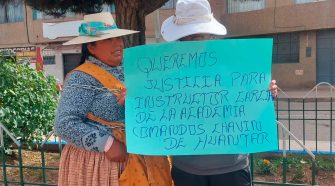 QUEREMOS
JUSTICIA PARA
INSTRUCTOR GARCIA
DE LA ACADEMIA
COMANDOS CHAVIN
DE HUANTAR